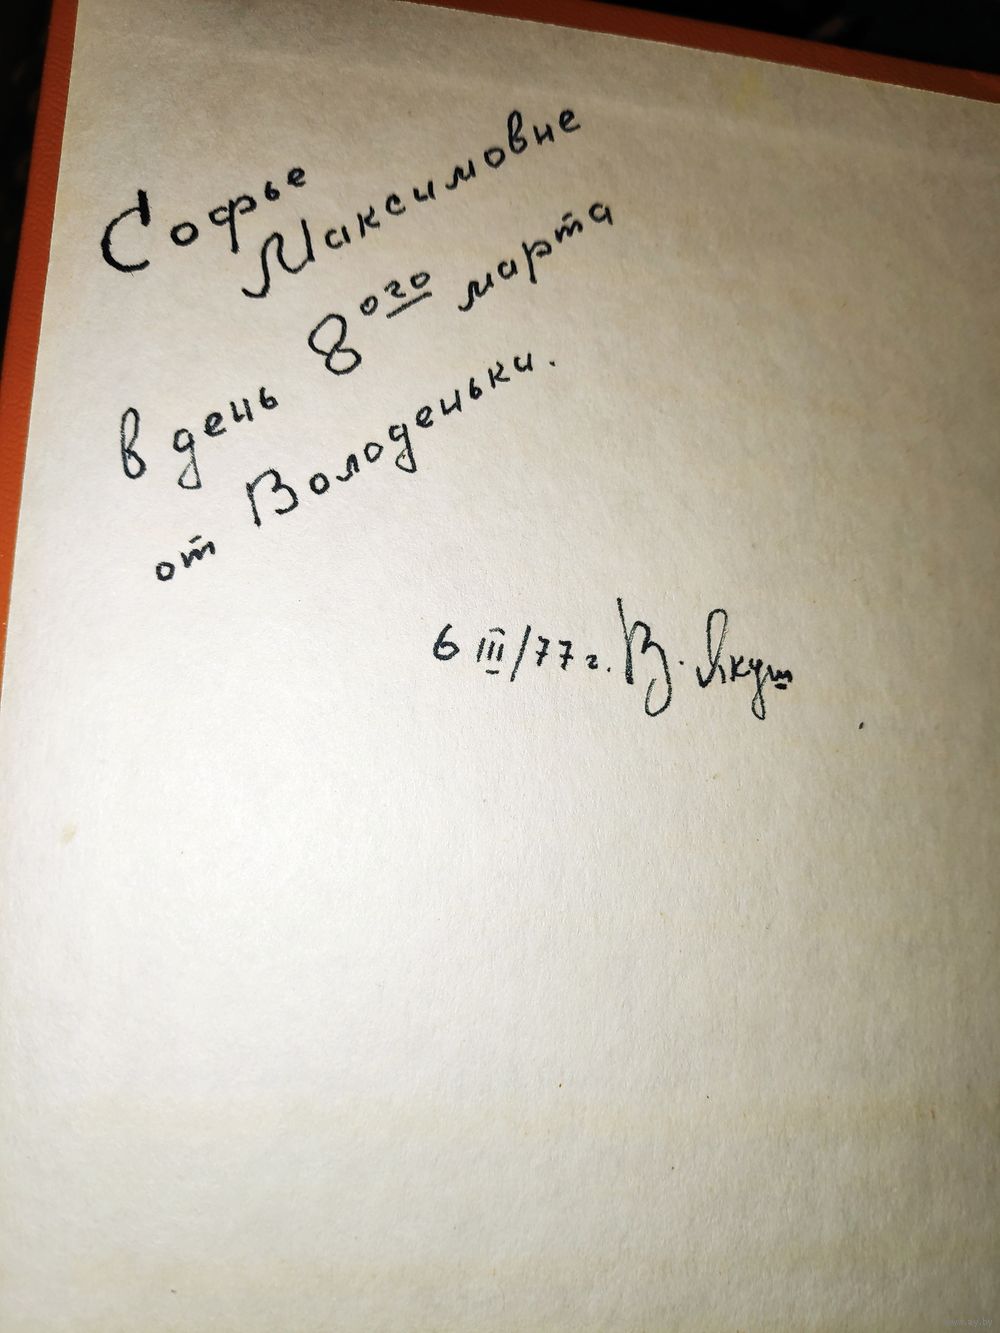 Софье
Максимовне
в день 8ого марта
от Володеньки.
6 III/77 г. В. Якуш
www.ay.by